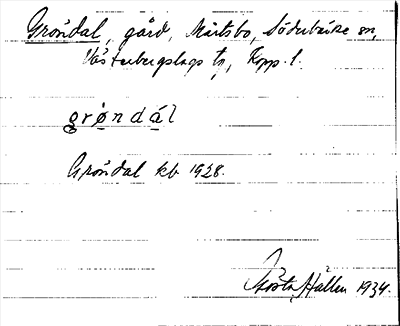 Gröndal, gård, Mårtsbo, Söderbärke sn,
Västerbergslags tg, Kopp. l.
grøndál
Gröndal kb 1928.
Gösta Hallen 1934.